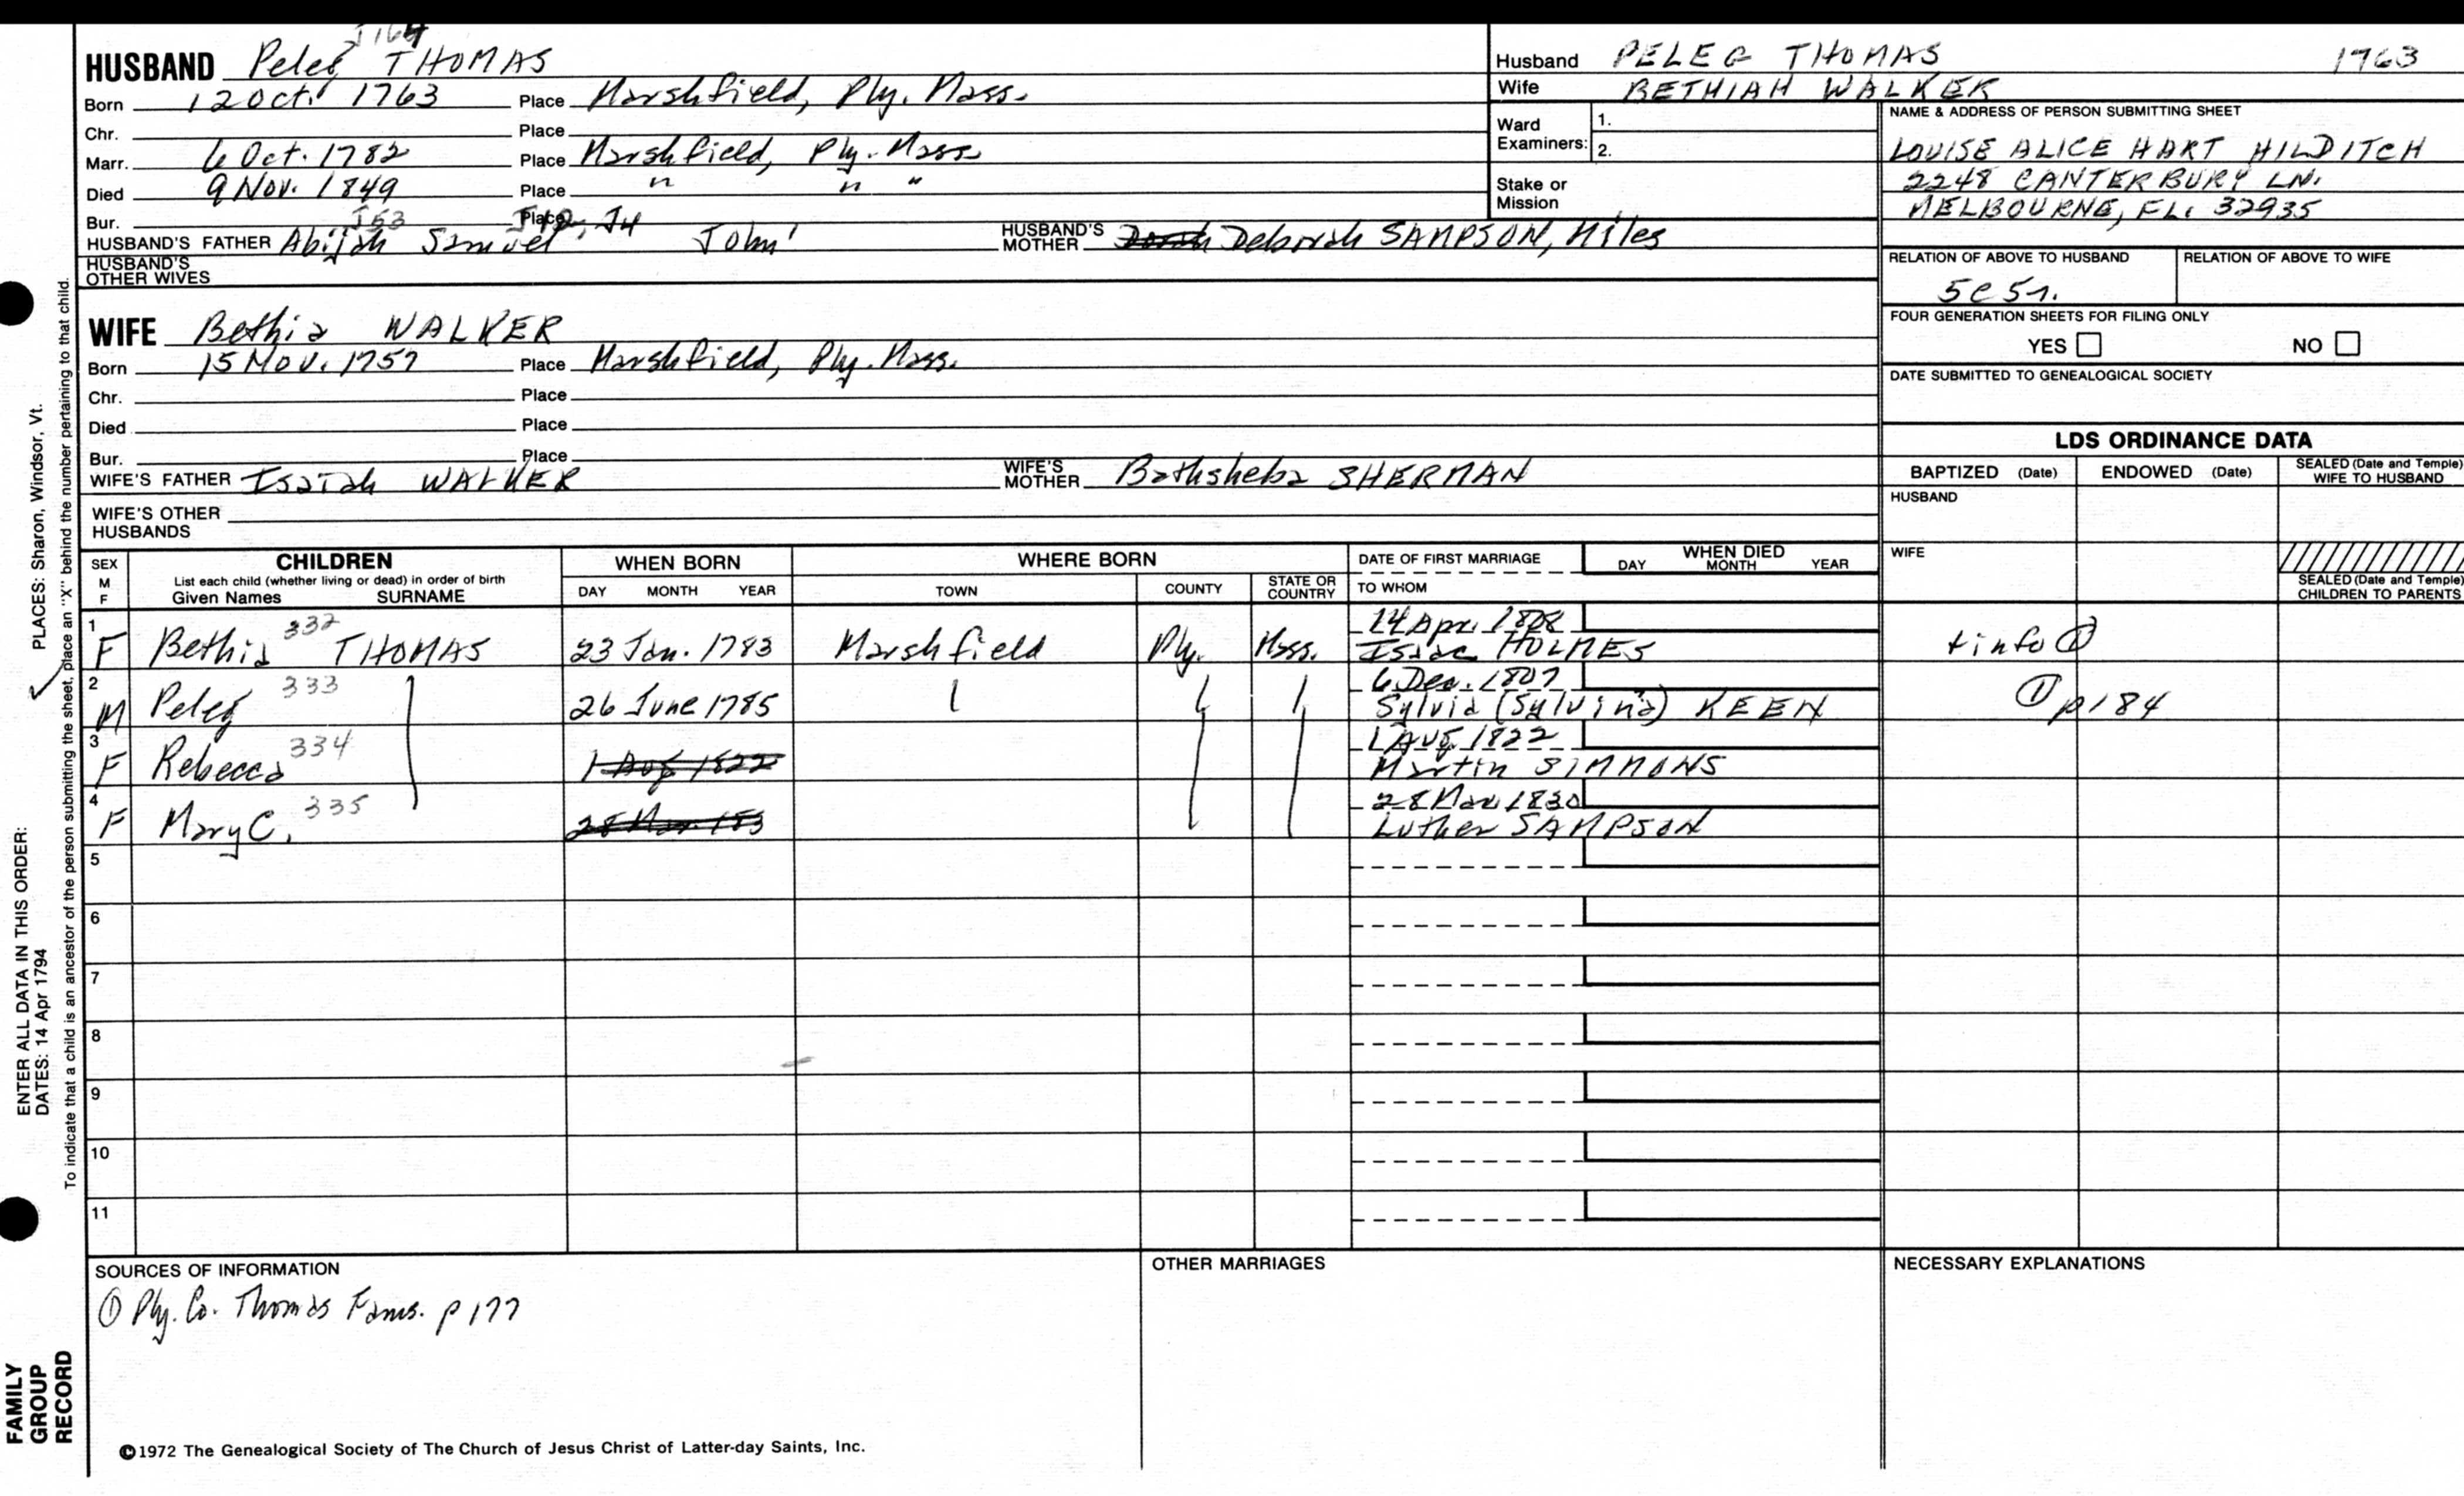 HUSBAND Peleg THOMAS
Born 12 Oct. 1763 Place Marshfield, Ply. Mass.
Chr. Place
Marr. 6 Oct. 1782 Place Marshfield, Ply. Mass.
Died 9 Nov. 1849 Place " " "
Bur. J53 Place J4
HUSBAND'S FATHER Abijah Samuel John HUSBAND'S MOTHER Deborah SAMPSON, Miles
HUSBAND'S OTHER WIVES
Husband PELEG THOMAS 1763
Wife BETHIAH WALKER
Ward Examiners: 1.
2.
Stake or Mission
NAME & ADDRESS OF PERSON SUBMITTING SHEET
LOUISE ALICE HART HILDITCH
2248 CANTERBURY LN.
MELBOURNE, FL. 32935
RELATION OF ABOVE TO HUSBAND RELATION OF ABOVE TO WIFE
5C5r.
FOUR GENERATION SHEETS FOR FILING ONLY
YES NO
DATE SUBMITTED TO GENEALOGICAL SOCIETY
WIFE Bethia WALKER
Born 15 Nov. 1757 Place Marshfield, Ply. Mass.
Chr. Place
Died Place
Bur. Place
WIFE'S FATHER Isaiah WALKER WIFE'S MOTHER Bathsheba SHERMAN
WIFE'S OTHER HUSBANDS
LDS ORDINANCE DATA
BAPTIZED (Date) ENDOWED (Date) SEALED (Date and Temple) WIFE TO HUSBAND
HUSBAND
WIFE
SEALED (Date and Temple) CHILDREN TO PARENTS
SEX M F CHILDREN WHEN BORN WHERE BORN DATE OF FIRST MARRIAGE WHEN DIED
List each child (whether living or dead) in order of birth
Given Names SURNAME DAY MONTH YEAR TOWN COUNTY STATE OR COUNTRY TO WHOM DAY MONTH YEAR
14 Apr. 1808
1 F Bethia 332 THOMAS 23 Jan. 1783 Marshfield Ply. Mass. Isaac HOLMES + info ①
6 Dec. 1807
2 M Peleg 333 26 June 1785 Sylvia (Sylvina) KEEN ① p184
1 Aug. 1822
3 F Rebecca 334 1 Aug 1822 Martin SIMMONS
28 Mar. 1830
4 F Mary C. 335 28 Mar. 183 Luther SAMPSON
5
6
7
8
9
10
11
SOURCES OF INFORMATION
① Ply. Co. Thomas Fams. p 177
OTHER MARRIAGES
NECESSARY EXPLANATIONS
©1972 The Genealogical Society of The Church of Jesus Christ of Latter-day Saints, Inc.
FAMILY GROUP RECORD
ENTER ALL DATA IN THIS ORDER:
DATES: 14 Apr 1794 PLACES: Sharon, Windsor, Vt.
To indicate that a child is an ancestor of the person submitting the sheet, place an "X" behind the number pertaining to that child.